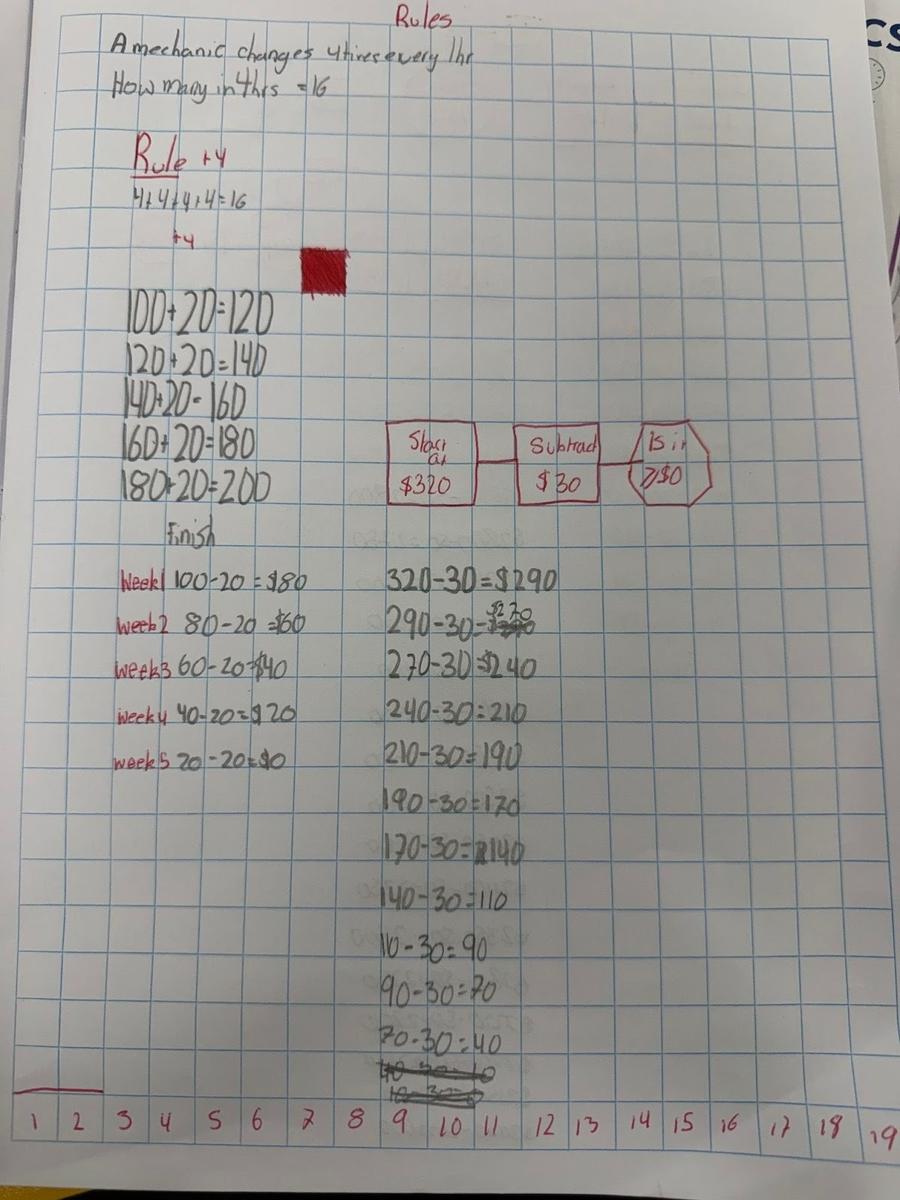 Rules
A mechanic changes 4 tires every 1hr
How many in 4hrs = 16
Rule +4
4+4+4+4=16
+4
100+20=120
120+20=140
140+20=160
160+20=180
180+20=200
Finish
Start at $320
Subtract $30
is it ≥$0
Week1 100-20=$80
week2 80-20=$60
week3 60-20=$40
week4 40-20=$20
week5 20-20=$0
320-30=$290
290-30=$270
270-30=$240
240-30=210
210-30=190
190-30=170
170-30=140
140-30=110
110-30=90
90-30=70
70-30=40
40-30=10
1 2 3 4 5 6 7 8 9 10 11 12 13 14 15 16 17 18 19
CS